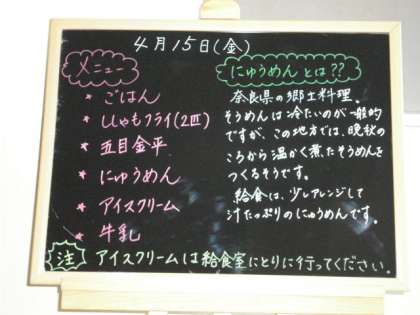 4月15日(金)
メニュー
* ごはん
* ししゃもフライ(2匹)
* 五目金平
* にゅうめん
* アイスクリーム
* 牛乳
にゅうめんとは??
奈良県の郷土料理。
そうめんは冷たいのが一般的
ですが、この地方では、晩秋の
ころから温かく煮たそうめんを
つくるそうです。
給食は、少しアレンジして
汁たっぷりのにゅうめんです。
注 アイスクリームは給食室にとりに行ってください。